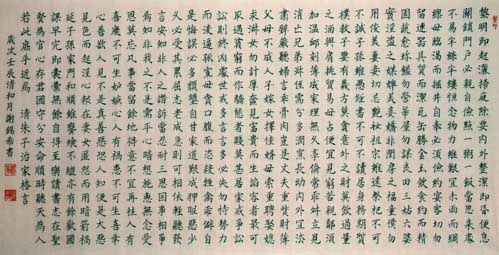 黎明即起灑掃庭除要內外整潔既昏便息
關鎖門戶必親自檢點一粥一飯當思來處
不易半絲半縷恒念物力維艱宜未雨而綢
繆毋臨渴而掘井自奉必須儉約宴客切勿
留連器具質而潔瓦缶勝金玉飲食約而精
園蔬愈珍饈勿營華屋勿謀良田三姑六婆
實淫盜之媒婢美妾嬌非閨房之福童僕勿
用俊美妻妾切忌艷妝祖宗雖遠祭祀不可
不誠子孫雖愚經書不可不讀居身務期質
樸教子要有義方莫貪意外之財莫飲過量
之酒與肩挑貿易毋占便宜見窮苦親鄰須
加溫卹刻薄成家理無久享倫常乖舛立見
消亡兄弟叔姪需分多潤寡長幼內外宜法
肅辭嚴聽婦言乖骨肉豈是丈夫重貲財薄
父母不成人子嫁女擇佳婿毋索重聘娶媳
求淑女勿計厚奩見富貴而生諂容者最可
恥遇貧窮而作驕態者賤莫甚居家戒爭訟
訟則終凶處世戒多言言多必失勿恃勢力
而凌逼孤寡毋貪口腹而恣殺牲禽乖僻自
是悔誤必多頹惰自甘家道難成狎暱惡少
久必受其累屈志老成急則可相依輕聽發
言安知非人之譖訴當忍耐三思因事相爭
焉知非我之不是需平心暗想施惠無念受
恩莫忘凡事當留餘地得意不宜再往人有
喜慶不可生妒嫉心人有禍患不可生喜幸
心善欲人見不是真善惡恐人知便是大惡
見色而起淫心報在妻女匿怨而用暗箭禍
延子孫家門和順雖饔飧不繼亦有餘歡國
課早完即囊橐無餘自得至樂讀書志在聖
賢為官心存君國守分安命順時聽天為人
若此庶乎近焉 清朱子治家格言
歲次壬辰清和月謝錫希書